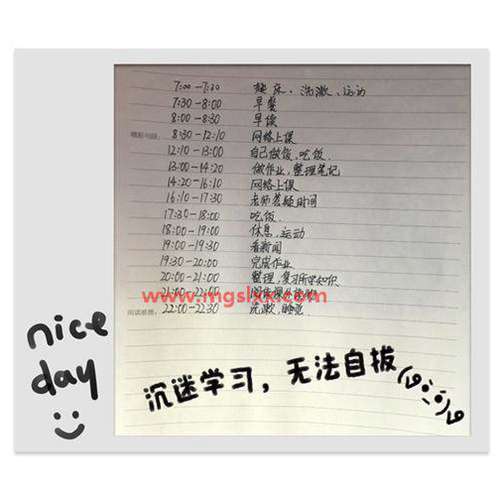 7:00-7:30 起床、洗漱、运动
7:30-8:00 早餐
8:00-8:30 早读
8:30-12:10 网络上课
12:10-13:00 自己做饭,吃饭.
13:00-14:20 做作业,整理笔记
14:20-16:10 网络上课
16:10-17:30 老师答疑时间
17:30-18:00 吃饭.
18:00-19:00 休息,运动
19:00-19:30 看新闻
19:30-20:00 完成作业
20:00-21:00 整理,复习所学知识
21:00-22:00
www.mgslxx.com
22:00-22:30 洗漱,睡觉
nice
day
沉迷学习，无法自拔